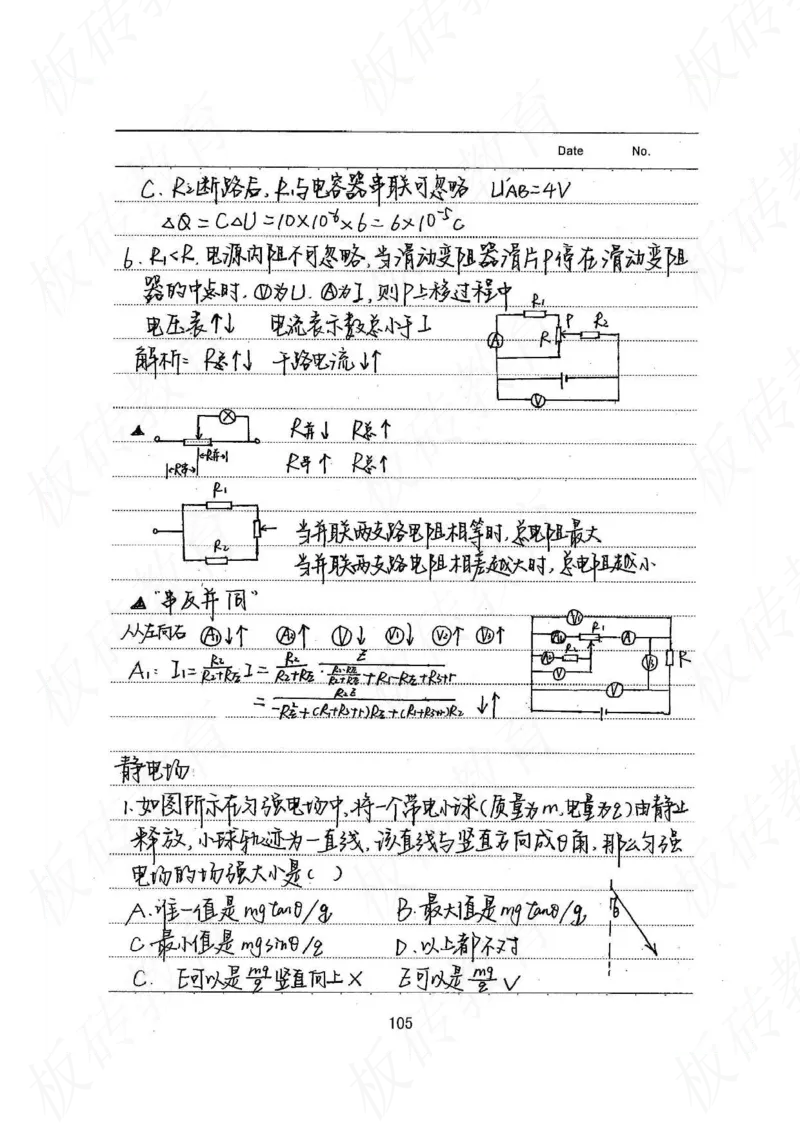 Date No.
C. R₂断路后, R₁与电容器串联可忽略 U'AB=4V
△Q = C△U = 10×10⁻⁶×6 = 6×10⁻⁵C
6. R₁<R, 电源内阻不可忽略, 当滑动变阻器滑片P停在滑动变阻
器的中点时, Ⓥ为U. Ⓐ为I, 则P上移过程中
电压表↑↓ 电流表示数总小于I
解析= R总↑↓ 干路电流↓↑
R₁
P
R₂
A
R
V
▲
R并↓ R总↑
R串↑ R总↑
|←R并→|
|←R串→|
R₁
R₂
当并联两支路电阻相等时, 总电阻最大
当并联两支路电阻相差越大时, 总电阻越小
▲ "串反并同"
从左向右 A₁↓↑ A₂↑ V↓ V₁↓ V₂↑ V₃↑
A₁: I₁=
=
↓↑
V₁
R₁
A
R₂
V₃
R
V
V
静电场
1.如图所示在匀强电场中, 将一个带电小球(质量为m, 电量为q)由静止
释放, 小球轨迹为一直线, 该直线与竖直方向成θ角, 那么匀强
电场的场强大小是( )
A.唯一值是 mgtanθ/q B.最大值是 mgtanθ/q
θ
C.最小值是 mgsinθ/q D.以上都不对
C. E可以是 mg/q 竖直向上 × E可以是 mg/q √
105
板砖教育